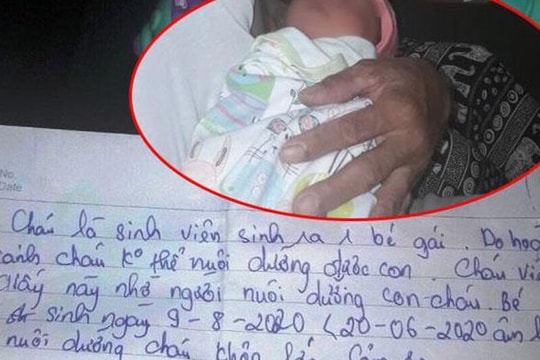 No.
Date
Cháu là sinh viên sinh ra 1 bé gái. Do hoà
cảnh cháu ko thể nuôi dưỡng được con. Cháu viế
giấy này nhờ người nuôi dưỡng con cháu. Bé
sinh ngày 9-8-2020 (20-06-2020 âm l
nuôi dưỡng cháu khôn lớn. Cảm